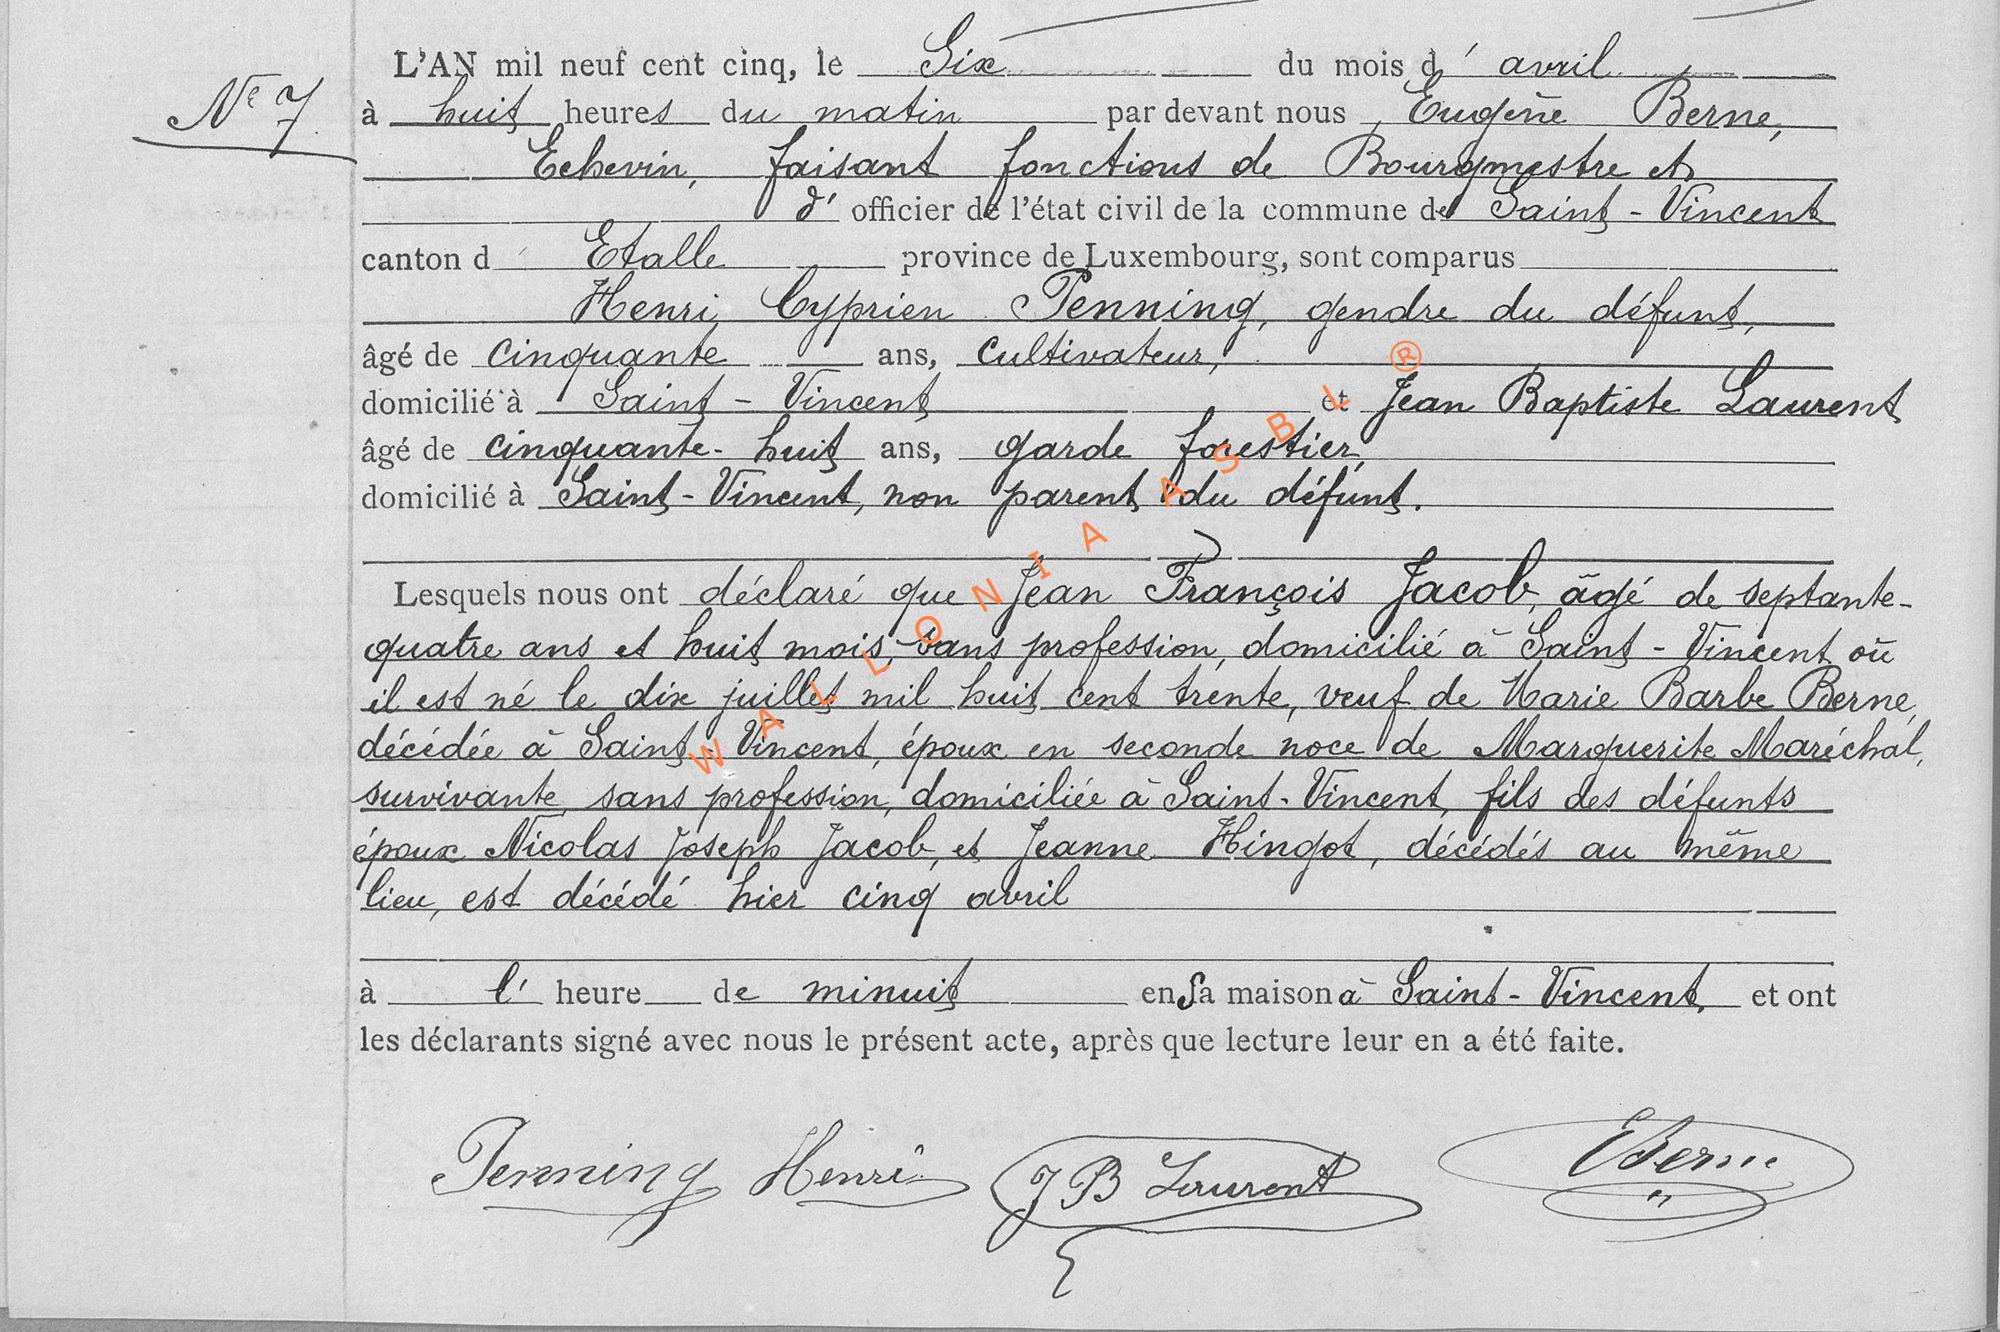 L'AN mil neuf cent cinq, le Six du mois d' avril
N° 7
à huit heures du matin par devant nous Eugène Berne,
Echevin, faisant fonctions de Bourgmestre et
d' officier de l'état civil de la commune de Saint-Vincent
canton d' Etalle province de Luxembourg, sont comparus
Henri Cyprien Penning, gendre du défunt,
âgé de cinquante ans, cultivateur,
domicilié à Saint-Vincent et Jean Baptiste Laurent
âgé de cinquante-huit ans, garde forestier,
domicilié à Saint-Vincent, non parent du défunt.
Lesquels nous ont déclaré que Jean François Jacob, âgé de septante-
quatre ans et huit mois, sans profession, domicilié à Saint-Vincent où
il est né le dix juillet mil huit cent trente, veuf de Marie Barbe Berne,
décédée à Saint-Vincent, époux en seconde noce de Marguerite Maréchal,
survivante, sans profession, domiciliée à Saint-Vincent, fils des défunts
époux Nicolas Joseph Jacob, et Jeanne Hingot, décédés au même
lieu, est décédé hier cinq avril
à l' heure de minuit en Sa maison à Saint-Vincent, et ont
les déclarants signé avec nous le présent acte, après que lecture leur en a été faite.
Penning Henri JB Laurent EBerne
WALLONIA ASBL ®